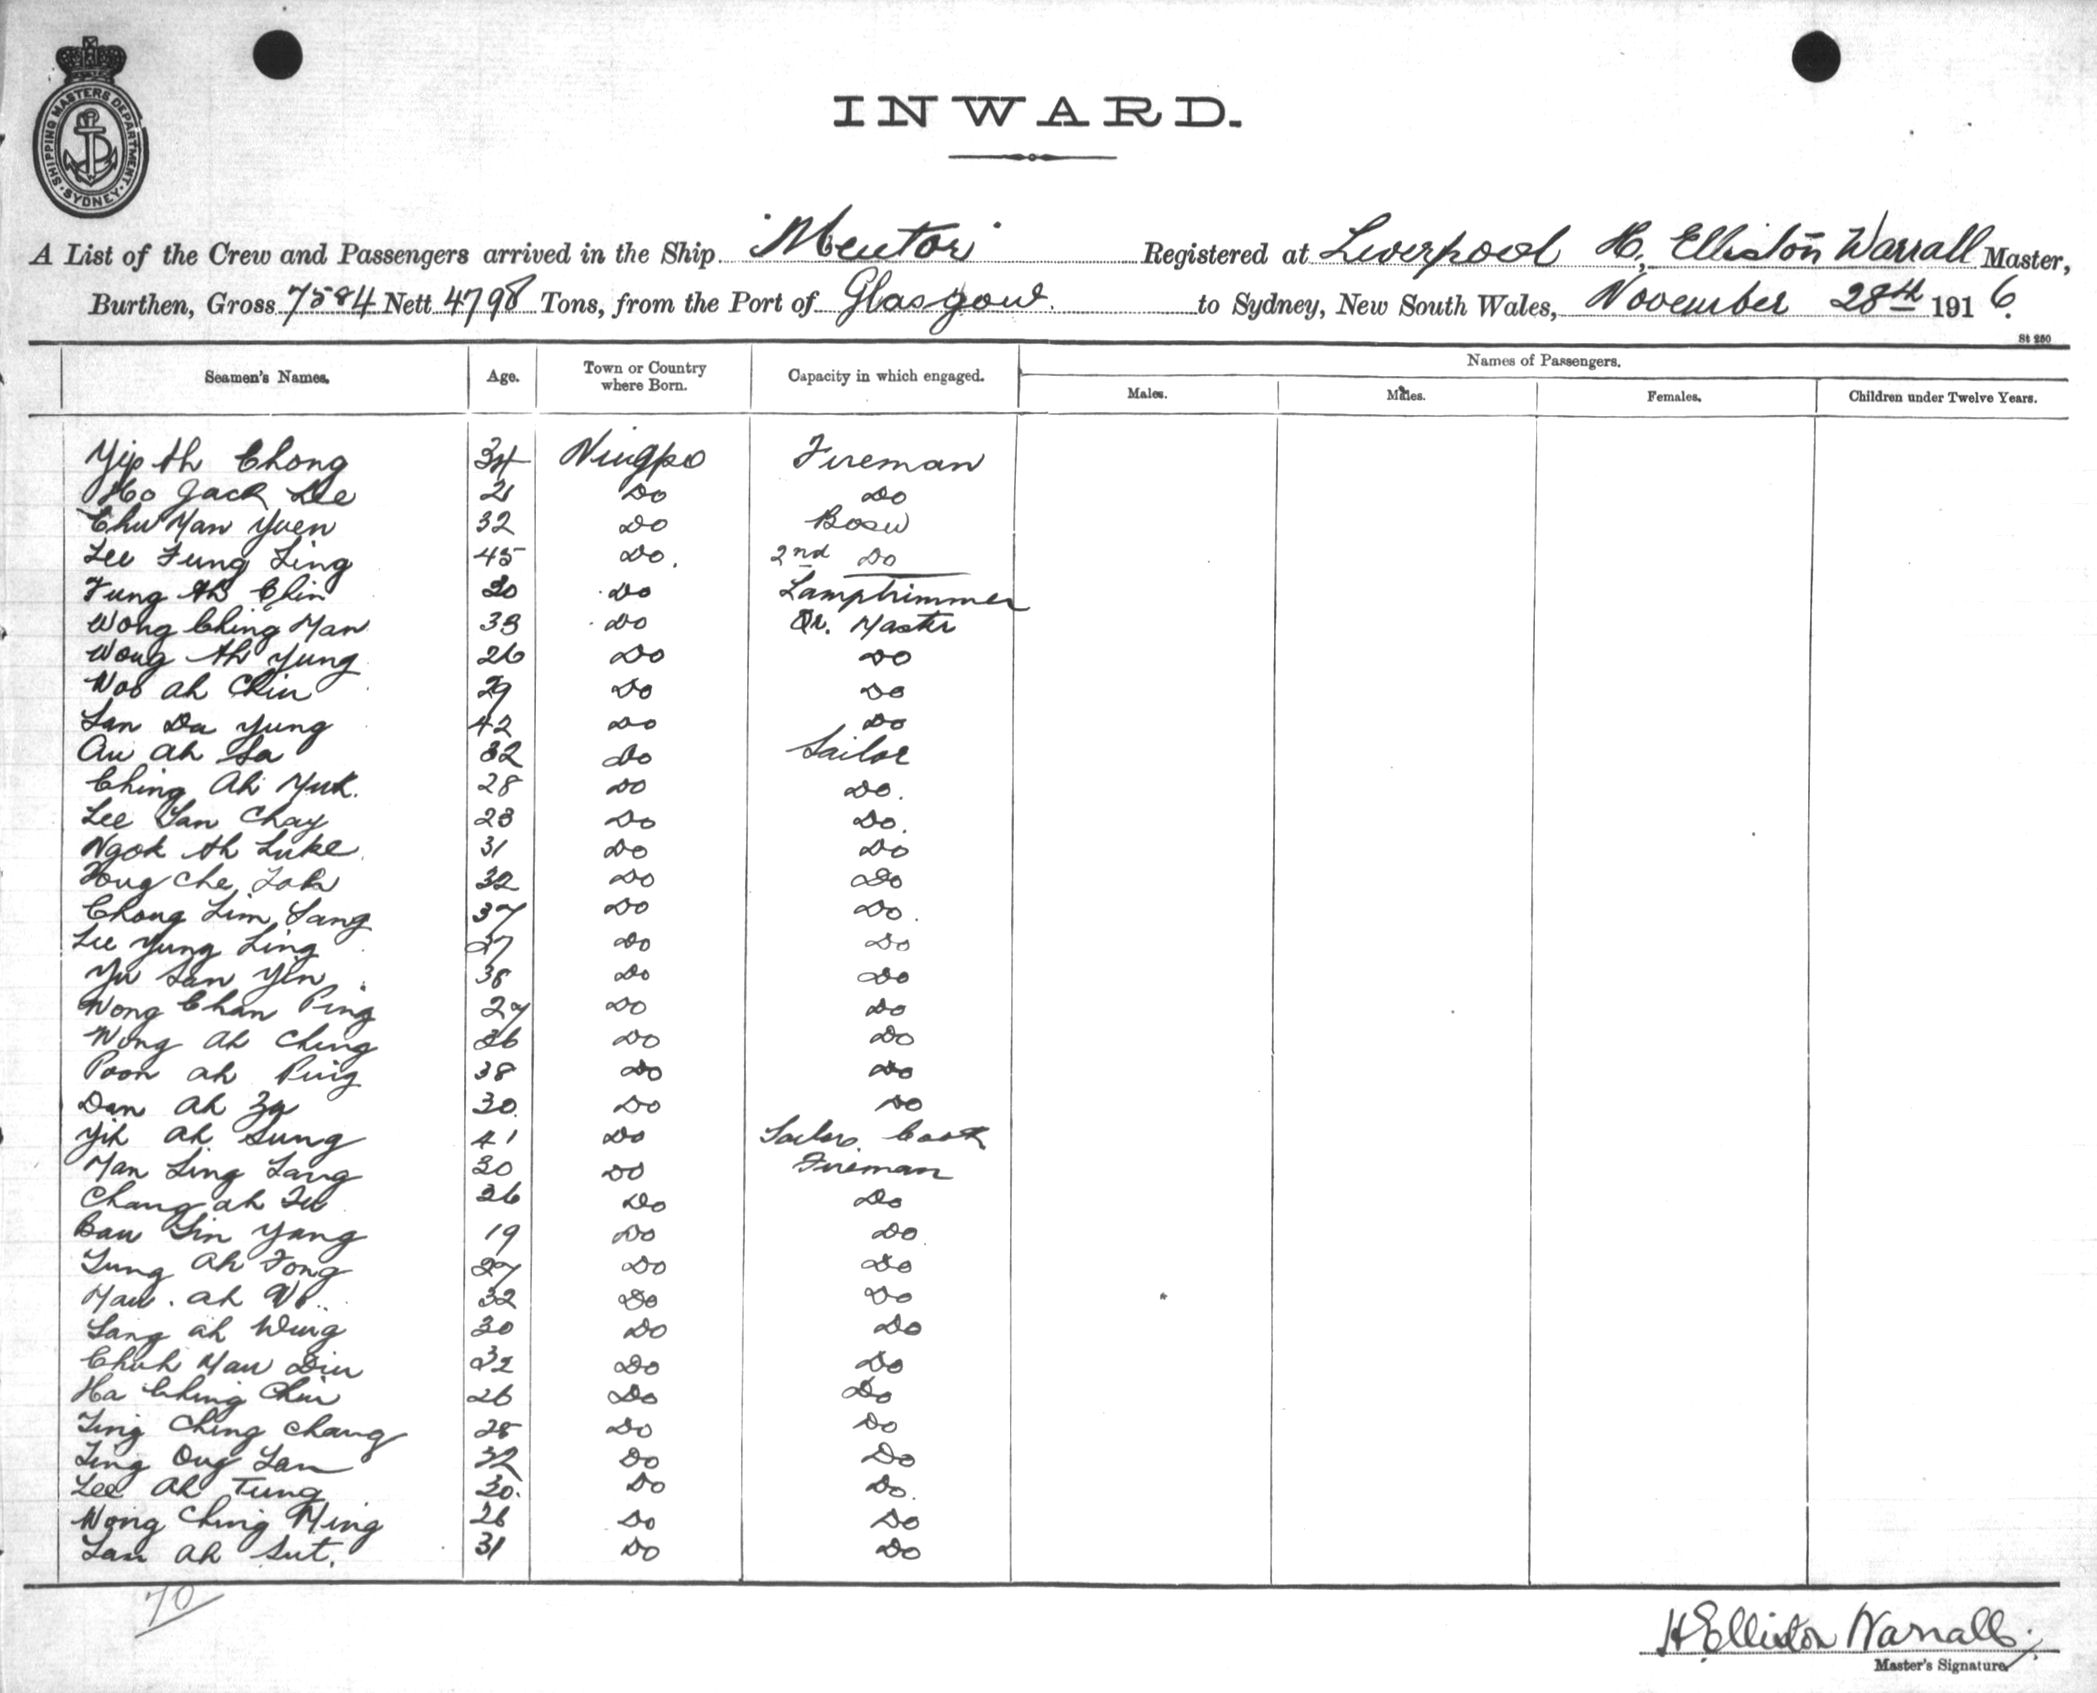 SHIPPING MASTERS DEPARTMENT · SYDNEY ·
INWARD.
A List of the Crew and Passengers arrived in the Ship "Mentor" Registered at Liverpool H. Elliston Warrall Master,
Burthen, Gross 7584 Nett 4798 Tons, from the Port of Glasgow. to Sydney, New South Wales, November 28th 1916.
St 250
Seamen's Names. Age. Town or Country where Born. Capacity in which engaged. Names of Passengers.
Males. Males. Females. Children under Twelve Years.
Yip Ah Chong 34 Ningpo Fireman
Ho Jack Lee 21 Do Do
Chu Man Yuen 32 Do Bosn
Lee Fung Ling 45 Do. 2nd Do
Fung Ah Chin 30 Do Lamptrimmer
Wong Ching Man 33 Do Qr. Master
Wong Ah Yung 26 Do Do
Woo Ah Chin 29 Do Do
San Da Yung 42 Do Do
Au Ah Sa 32 Do Sailor
Ching Ah Yuk. 28 Do Do.
Lee San Chay 28 Do Do.
Ngok Ah Luke 31 Do Do
Che 32 Do Do
Chong Lim Sang 37 Do Do.
Lee Yung Ling 27 Do Do
Yu San Yin 38 Do Do
Wong Chan Ping 27 Do Do
Wong Ah Ching 36 Do Do
Poon Ah Ping 38 Do Do
Dan Ah 30 Do Do
Yih Ah Sung 41 Do Sailors Cook
Man Ling Lang 30 Do Fireman
Chang Ah 26 Do Do
Bau Sin Yang 19 Do Do
Ah Fong 27 Do Do
Mau. Ah 32 Do Do
Sang Ah Wing 30 Do Do
Chuh Mau Diu 32 Do Do
Ha Ching Chin 26 Do Do
Ling Ching Chang 28 Do Do
Ling Ong San 32 Do Do
Lee Ah Tung 30. Do Do.
Wong Ching Ming 26 Do Do
San Ah Sut. 31 Do Do
70
H Elliston Warrall
Master's Signature